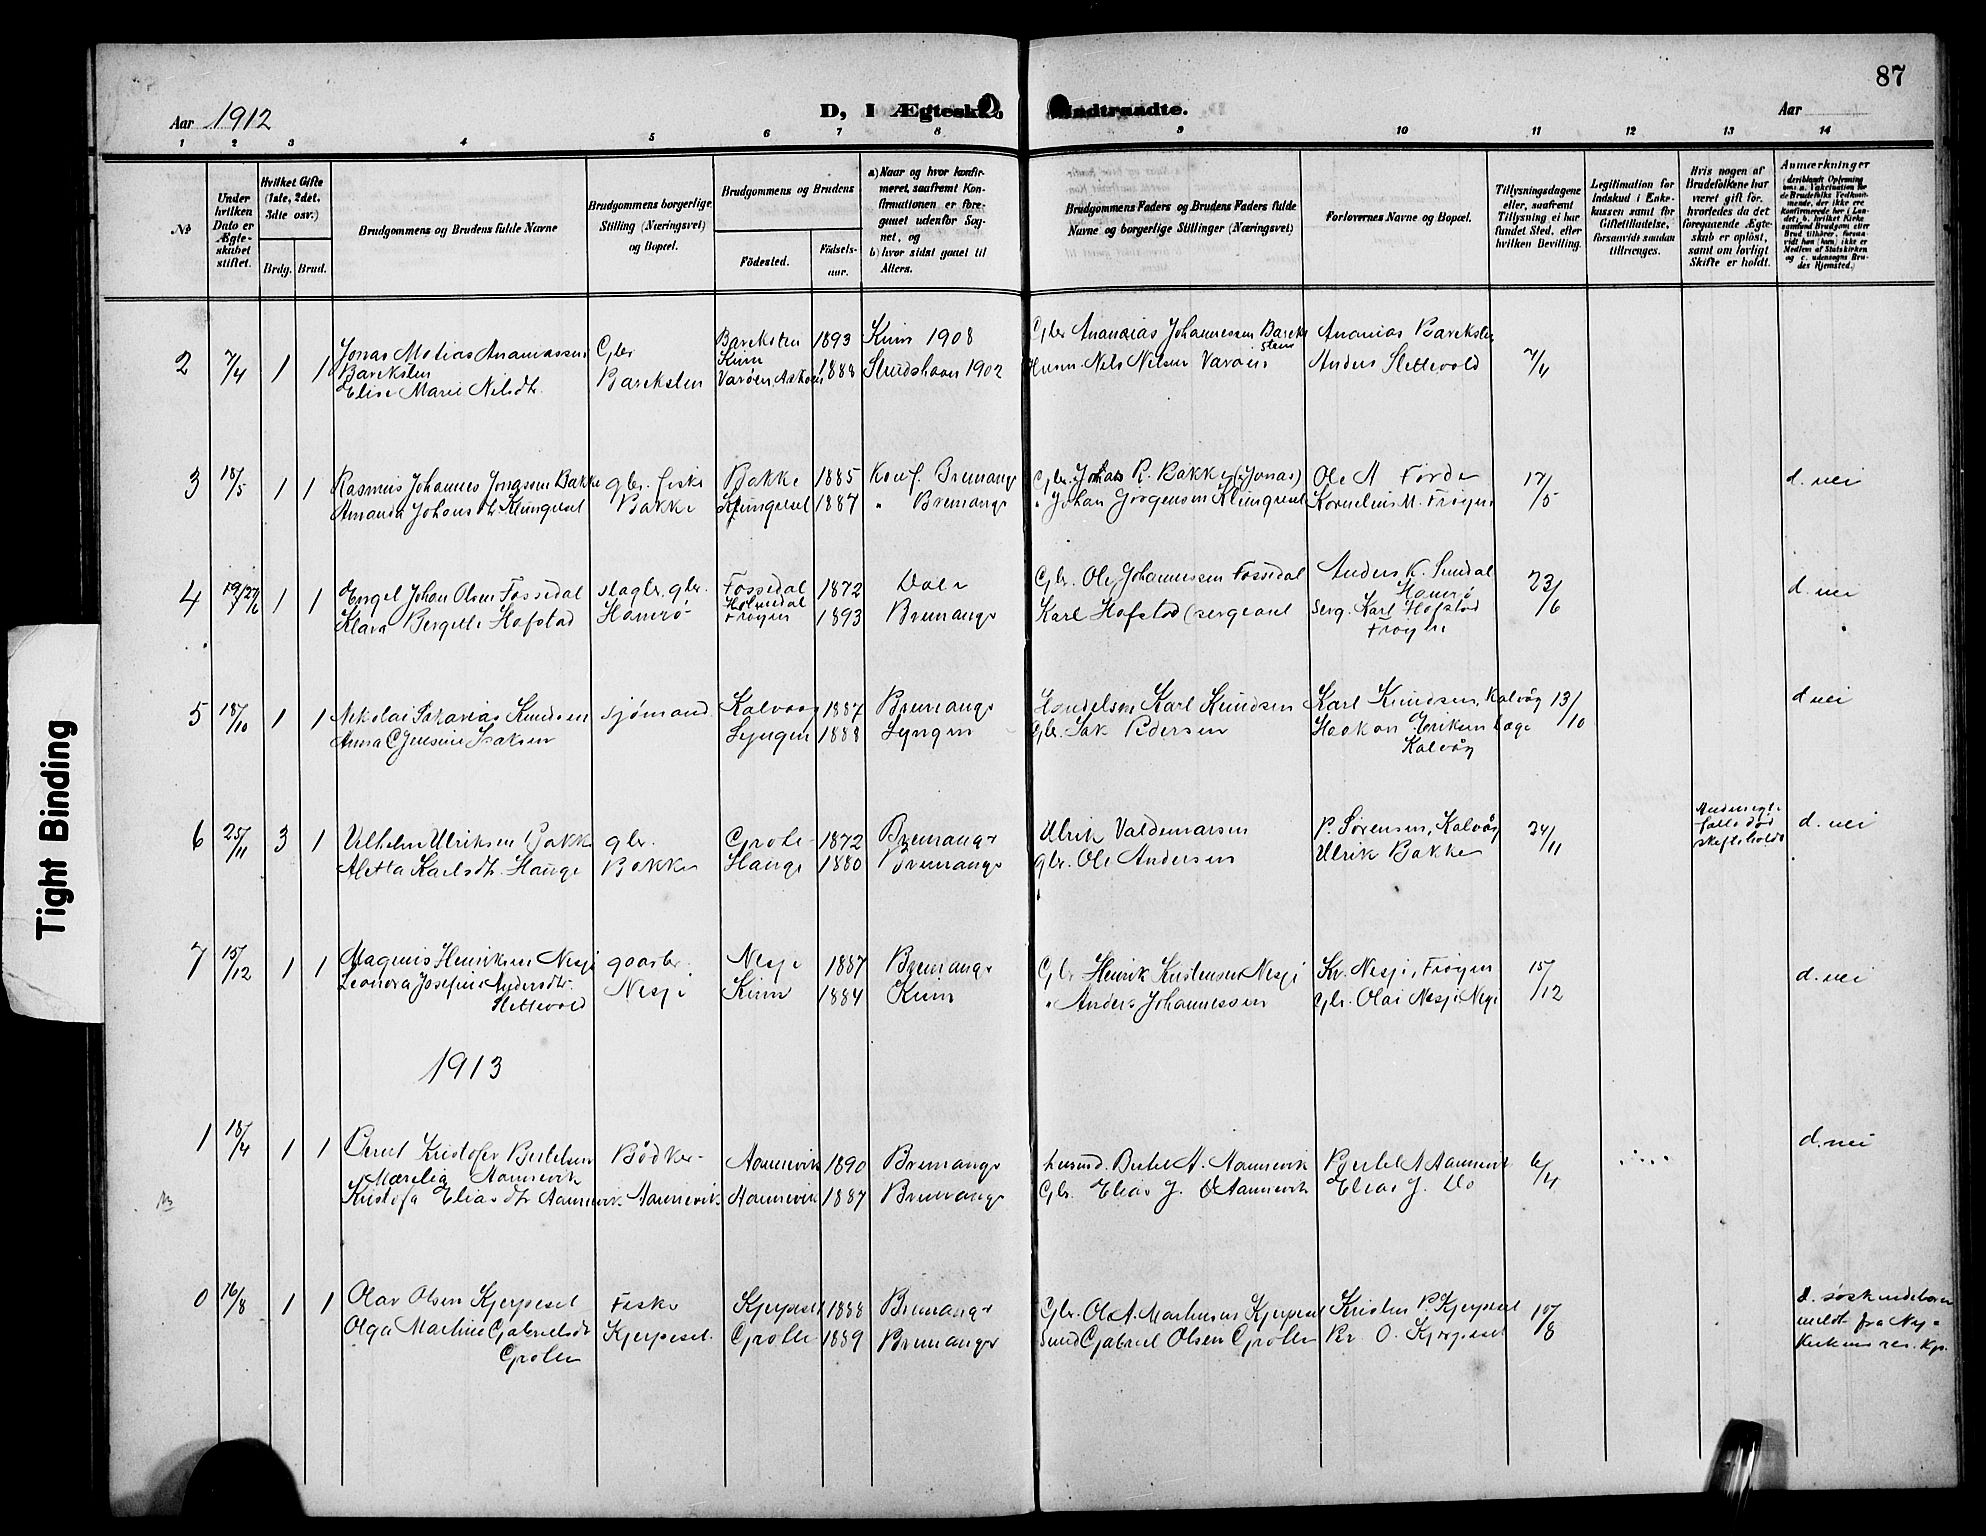 87
D, I Ægteska
indtraadte.
Aar 1912
Aar
1 2 3 4 5 6 7 8 9 10 11 12 13 14
No
Under hvilken Dato er Ægteskabet stiftet.
Hvilket Gifte (1ste, 2det, 3die osv.)
Brdg. Brud.
Brudgommens og Brudens fulde Navne
Brudgommens borgerlige Stilling (Næringsvei) og Bopæl.
Brudgommens og Brudens
Fødested. Fødselsaar.
a) Naar og hvor konfirmeret, saafremt Konfirmationen er foregaaet udenfor Sognet, og
b) hvor sidst gaaet til Alters.
Brudgommens Faders og Brudens Faders fulde Navne og borgerlige Stillinger (Næringsvei)
Forlovernes Navne og Bopæl.
Tillysningsdagene eller, saafremt Tillysning ei har fundet Sted, efter hvilken Bevilling.
Legitimation for Indskud i Enkekassen samt for Giftetilladelse, forsaavidt saadan tiltrænges.
Hvis nogen af Brudefolkene har været gift før, hvorledes da det foregaaende Ægteskab er opløst, samt om lovligt Skifte er holdt.
Anmærkninger
2 7/4 1 1 Jonas Matias Ananiassen Gbr Bareksten 1893 Kinn 1908 Gbr Ananias Johannessen Barek- Ananias Bareksten 7/4
Bareksten Kinn sten
Elise Marie Nilsdt. Bareksten Varøen Askvoll 1888 Stundshavn 1902 Husm. Nils Nilsen Varøen Anders Slettevold
3 18/5 1 1 Rasmus Johannes Jonassen Bakke gbr. fisker Bakke 1885 Konf. Bremanger Gbr. Johas R. Bakke (Jonas) Ole A Førde 17/5 d. nei
Amanda Johansdt. Klungeset Bakke Klungeset 1887 " Bremanger " Johan Jørgensen Klungeset Kornelius M. Frøyen
4 1 1 Engel Johan Olsen Fossedal slagter gbr. Fossedal 1872 Dale Gbr. Ole Johannessen Fossedal Anders K. Sundal 23/6 d. nei
Holmedal Hamrø
Klara Bergitte Hofstad Hamrø Frøyen 1893 Bremanger Karl Hofstad (sergeant serg. Karl Hofstad
Frøyen
5 18/10 1 1 Nikolai Sakarias Knudsen sjømand Kalvaag 1887 Bremanger Handelsm Karl Knudsen Karl Knudsen, Kalvåg 13/10 d. nei
Anna C Jensine Isaksen Lyngen 1888 Lyngen Gbr. Isak Pedersen Haakon Eriksen Læge
Kalvåg
6 25/11 3 1 Vilhelm Ulriksen Bakke gbr. Grote 1872 Bremanger Ulrik Valdemarsen P. Sørensen, Kalvåg 24/11 d. nei
Aletta Karlsdt. Hauge Bakke Hauge 1880 Bremanger gbr. Ole Andersen Ulrik Bakke
7 15/12 1 1 Magnus Henriksen Nesje gaarbr. Nesje 1887 Bremanger Gbr Henrik Kristensen Nesje Kr. Nesje, Frøyen 15/12 d. nei
Leonora Josefine Andersdt. Nesje Kinn 1884 Kinn " Anders Johannessen Gbr. Olai Nesje Nesje
Slettevold
1913
1 18/4 1 1 Kristofer Bertelsen Bødker Aannevik 1890 Bremanger husmd. Bertel A. Aannevik Bertel A Aannevik 6/4 d. nei
Aannevik
Kristofa Eliasdt. Aannevik Aannevik Aannevik 1887 Bremanger Gbr. Elias J. Aannevik Elias J. Do
0 16/8 1 1 Olav Olsen Kjerpeset Fisker Kjerpeset 1888 Bremanger Gbr. Ole A. Martinsen Kjerpeset Kristen P. Kjerpeset 10/8 d. søskendebarn
Olga Martine Gabrielsdt Kjerpeset Grotle 1889 Bremanger Smed Gabriel Olsen Grotle Kr. O. Kjerpeset meldt fra Ny-
Grotle kirkens res. kp.
Tight Binding